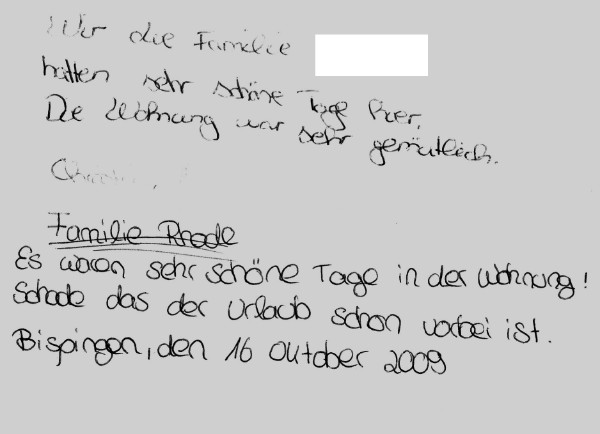 Wir die Familie
hatten sehr schöne Tage hier.
Die Wohnung war sehr gemütlich.
Familie Rhode
Es waren sehr schöne Tage in der Wohnung!
Schade das der Urlaub schon vorbei ist.
Bispingen, den 16 Outober 2009